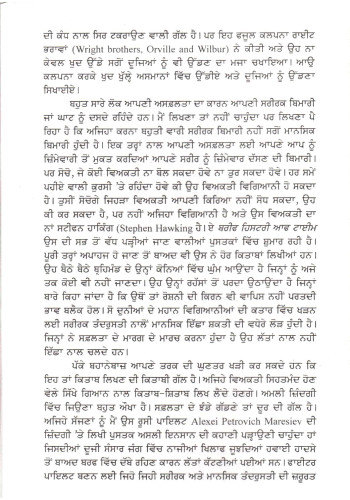 ਦੀ ਕੰਧ ਨਾਲ ਸਿਰ ਟਕਰਾਉਣ ਵਾਲੀ ਗੱਲ ਹੈ। ਪਰ ਇਹ ਫਜ਼ੂਲ ਕਲਪਨਾ ਰਾਈਟ
ਭਰਾਵਾਂ (Wright brothers, Orville and Wilbur) ਨੇ ਕੀਤੀ ਅਤੇ ਉਹ ਨਾ
ਕੇਵਲ ਖੁਦ ਉੱਡੇ ਸਗੋਂ ਦੂਜਿਆਂ ਨੂੰ ਵੀ ਉੱਡਣ ਦਾ ਮਜਾ ਚਖਾਇਆ। ਆਉ
ਕਲਪਨਾ ਕਰਕੇ ਖੁਦ ਖੁੱਲ੍ਹੇ ਅਸਮਾਨਾਂ ਵਿੱਚ ਉੱਡੀਏ ਅਤੇ ਦੂਜਿਆਂ ਨੂੰ ਉੱਡਣਾ
ਸਿਖਾਈਏ।
ਬਹੁਤ ਸਾਰੇ ਲੋਕ ਆਪਣੀ ਅਸਫ਼ਲਤਾ ਦਾ ਕਾਰਨ ਆਪਣੀ ਸਰੀਰਕ ਬਿਮਾਰੀ
ਜਾਂ ਘਾਟ ਨੂੰ ਦਸਦੇ ਰਹਿੰਦੇ ਹਨ। ਮੈਂ ਲਿਖਣਾ ਤਾਂ ਨਹੀਂ ਚਾਹੁੰਦਾ ਪਰ ਲਿਖਣਾ ਪੈ
ਰਿਹਾ ਹੈ ਕਿ ਅਜਿਹਾ ਕਰਨਾ ਬਹੁਤੀ ਵਾਰੀ ਸਰੀਰਕ ਬਿਮਾਰੀ ਨਹੀਂ ਸਗੋਂ ਮਾਨਸਿਕ
ਬਿਮਾਰੀ ਹੁੰਦੀ ਹੈ। ਇਕ ਤਰ੍ਹਾਂ ਨਾਲ ਆਪਣੀ ਅਸਫਲਤਾ ਲਈ ਆਪਣੇ ਆਪ ਨੂੰ
ਜ਼ਿੰਮੇਵਾਰੀ ਤੋਂ ਮੁਕਤ ਕਰਦਿਆਂ ਆਪਣੇ ਸਰੀਰ ਨੂੰ ਜ਼ਿੰਮੇਵਾਰ ਦੱਸਣ ਦੀ ਬਿਮਾਰੀ।
ਪਰ ਸੋਚੋ, ਜੇ ਕੋਈ ਵਿਅਕਤੀ ਨਾ ਬੋਲ ਸਕਦਾ ਹੋਵੇ ਨਾ ਤੁਰ ਸਕਦਾ ਹੋਵੇ। ਹਰ ਸਮੇਂ
ਪਹੀਏ ਵਾਲੀ ਕੁਰਸੀ 'ਤੇ ਰਹਿੰਦਾ ਹੋਵੇ ਕੀ ਉਹ ਵਿਅਕਤੀ ਵਿਗਿਆਨੀ ਹੋ ਸਕਦਾ
ਹੈ। ਤੁਸੀਂ ਸੋਚੋਗੇ ਜਿਹੜਾ ਵਿਅਕਤੀ ਆਪਣੀ ਕਿਰਿਆ ਨਹੀਂ ਸੋਧ ਸਕਦਾ, ਉਹ
ਕੀ ਕਰ ਸਕਦਾ ਹੈ, ਪਰ ਨਹੀਂ ਅਜਿਹਾ ਵਿਗਿਆਨੀ ਹੈ ਅਤੇ ਉਸ ਵਿਅਕਤੀ ਦਾ
ਨਾਂ ਸਟੀਵਨ ਹਾਕਿੰਗ (Stephen Hawking ਹੈ। ਏ ਬਰੀਫ ਹਿਸਟਰੀ ਆਫ ਟਾਈਮ
ਉਸ ਦੀ ਸਭ ਤੋਂ ਵੱਧ ਪੜ੍ਹੀਆਂ ਜਾਣ ਵਾਲੀਆਂ ਪੁਸਤਕਾਂ ਵਿੱਚ ਸ਼ੁਮਾਰ ਰਹੀ ਹੈ।
ਪੂਰੀ ਤਰ੍ਹਾਂ ਅਪਾਹਜ ਹੋ ਜਾਣ ਤੋਂ ਬਾਅਦ ਵੀ ਉਸ ਨੇ ਹੋਰ ਕਿਤਾਬਾਂ ਲਿਖੀਆਂ ਹਨ।
ਉਹ ਬੈਠੇ ਬੈਠੇ ਬ੍ਰਹਿਮੰਡ ਦੇ ਉਨ੍ਹਾਂ ਕੋਨਿਆਂ ਵਿੱਚ ਘੁੰਮ ਆਉਂਦਾ ਹੈ ਜਿਨ੍ਹਾਂ ਨੂੰ ਅਜੇ
ਤਕ ਕੋਈ ਵੀ ਨਹੀਂ ਜਾਣਦਾ। ਉਹ ਉਨ੍ਹਾਂ ਰਹੱਸਾਂ ਤੋਂ ਪਰਦਾ ਉਠਾਉਂਦਾ ਹੈ ਜਿਨ੍ਹਾਂ
ਬਾਰੇ ਕਿਹਾ ਜਾਂਦਾ ਹੈ ਕਿ ਉਥੋਂ ਤਾਂ ਰੋਸ਼ਨੀ ਦੀ ਕਿਰਨ ਵੀ ਵਾਪਿਸ ਨਹੀਂ ਪਰਤਦੀ
ਭਾਵ ਬਲੈਕ ਹੋਲ। ਸੋ ਦੁਨੀਆਂ ਦੇ ਮਹਾਨ ਵਿਗਿਆਨੀਆਂ ਦੀ ਕਤਾਰ ਵਿੱਚ ਖੜਨ
ਲਈ ਸਰੀਰਕ ਤੰਦਰੁਸਤੀ ਨਾਲੋਂ ਮਾਨਸਿਕ ਇੱਛਾ ਸ਼ਕਤੀ ਦੀ ਵਧੇਰੇ ਲੋੜ ਹੁੰਦੀ ਹੈ।
ਜਿਨ੍ਹਾਂ ਨੇ ਸਫ਼ਲਤਾ ਦੇ ਮਾਰਗ ਦੇ ਮਾਰਚ ਕਰਨਾ ਹੁੰਦਾ ਹੈ ਉਹ ਲੱਤਾਂ ਨਾਲ ਨਹੀਂ
ਇੱਛਾ ਨਾਲ ਚਲਦੇ ਹਨ।
ਪੱਕੇ ਬਹਾਨੇਬਾਜ਼ ਆਪਣੇ ਤਰਕ ਦੀ ਘੁਣਤਰ ਖੜੀ ਕਰ ਸਕਦੇ ਹਨ ਕਿ
ਇਹ ਤਾਂ ਕਿਤਾਬ ਲਿਖਣ ਦੀ ਕਿਤਾਬੀ ਗੱਲ ਹੈ। ਅਜਿਹੇ ਵਿਅਕਤੀ ਸਿਹਤਮੰਦ ਹੋਣ
ਵੇਲੇ ਸਿੱਖੇ ਗਿਆਨ ਨਾਲ ਕਿਤਾਬ-ਸ਼ਿਤਾਬ ਲਿਖ ਲੈਂਦੇ ਹੋਣਗੇ। ਅਮਲੀ ਜ਼ਿੰਦਗੀ
ਵਿੱਚ ਜਿਉਣਾ ਬਹੁਤ ਔਖਾ ਹੈ। ਸਫ਼ਲਤਾ ਦੇ ਝੰਡੇ ਗੱਡਣੇ ਤਾਂ ਦੂਰ ਦੀ ਗੱਲ ਹੈ।
ਅਜਿਹੇ ਸੱਜਣਾਂ ਨੂੰ ਮੈਂ ਉਸ ਰੂਸੀ ਪਾਇਲਟ Alexei Petrovich Maresiev ਦੀ
ਜ਼ਿੰਦਗੀ 'ਤੇ ਲਿਖੀ ਪੁਸਤਕ ਅਸਲੀ ਇਨਸਾਨ ਦੀ ਕਹਾਣੀ ਪੜ੍ਹਾਉਣੀ ਚਾਹੁੰਦਾ ਹਾਂ
ਜਿਸਦੀਆਂ ਦੂਜੀ ਸੰਸਾਰ ਜੰਗ ਵਿੱਚ ਨਾਜੀਆਂ ਖਿਲਾਫ ਜੂਝਦਿਆਂ ਹਵਾਈ ਹਾਦਸੇ
ਤੋਂ ਬਾਅਦ ਬਰਫ ਵਿੱਚ ਦੱਬੇ ਰਹਿਣ ਕਾਰਨ ਲੱਤਾਂ ਕੱਟਣੀਆਂ ਪਈਆਂ ਸਨ। ਫਾਈਟਰ
ਪਾਇਲਟ ਬਣਨ ਲਈ ਜਿਹੋ ਜਿਹੀ ਸਰੀਰਕ ਅਤੇ ਮਾਨਸਿਕ ਤੰਦਰੁਸਤੀ ਦੀ ਜ਼ਰੂਰਤ